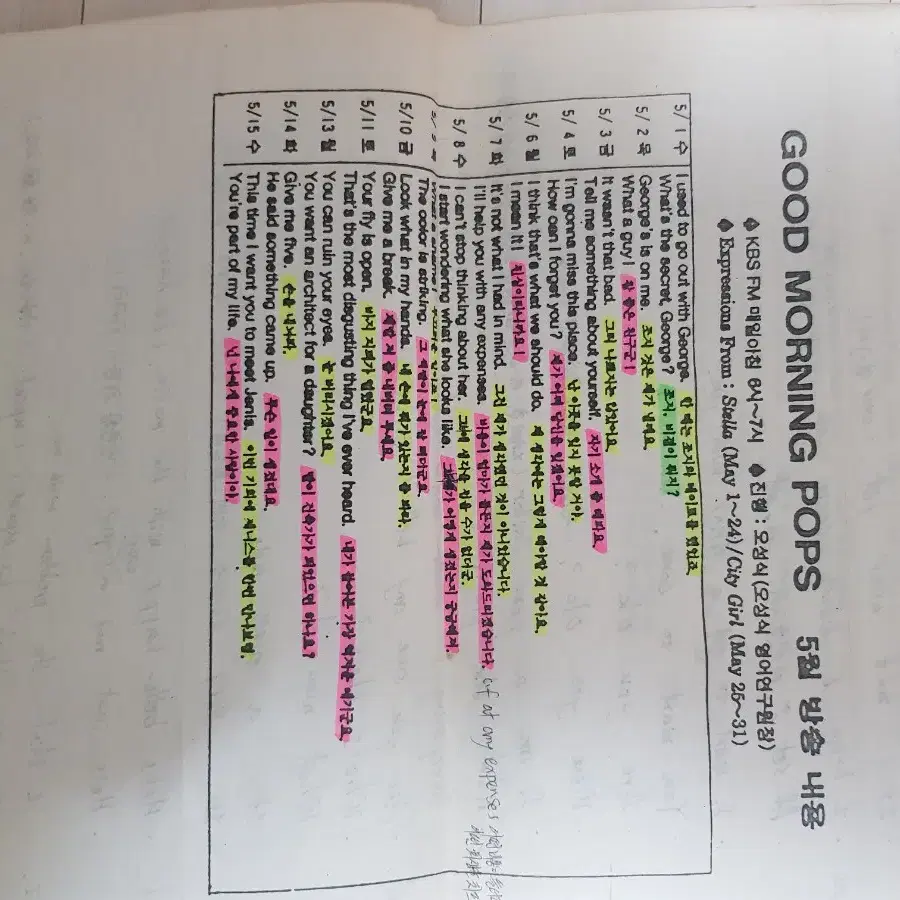 GOOD MORNING POPS 5월 방송 내용
◆ KBS FM 매일아침 6시~7시 ◆ 진행 : 오성식(오성식 영어연구원장)
◆ Expressions From : Stella (May 1~24)/City Girl (May 25~31)
5/ 1 수 I used to go out with George. 한 때는 조지와 데이트를 했었죠
What's the secret, George? 조지, 비결이 뭐지?
5/ 2 목 George's is on me. 조지 것은 제가 낼께요.
What a guy! 참 좋은 친구군!
5/ 3 금 It wasn't that bad. 그리 나쁘지는 않았어요.
Tell me something about yourself. 자기 소개 좀 해봐요.
5/ 4 토 I'm gonna miss this place. 난 이곳을 잊지 못할 거야.
How can I forget you? 제가 어찌 당신을 잊겠어요.
5/ 6 월 I think that's what we should do. 제 생각에는 그렇게 해야할 것 같아요.
I mean it! 진심이라니까요!
5/ 7 화 It's not what I had in mind. 그건 제가 생각했던 것이 아니었습니다.
I'll help you with any expenses. 비용이 얼마가 들든지 제가 도와드리겠습니다. cf at any expenses
5/ 8 수 I can't stop thinking about her. 그녀 생각을 멈출 수가 없다군.
I start wondering what she looks like. 그녀가 어떻게 생겼는지 궁금해져.
The color is striking. 그 색깔이 눈에 잘 띄더군요.
5/10 금 Look what in my hands. 내 손에 뭐가 있는지 좀 봐라.
Give me a break. 제발 저 좀 내버려 두세요.
5/11 토 Your fly is open. 바지 지퍼가 열렸군요.
That's the most disgusting thing I've ever heard. 내가 들어본 가장 역겨운 얘기군요.
5/13 월 You can ruin your eyes. 눈 버리시겠어요.
You want an architect for a daughter? 딸이 건축가가 되었으면 하나요?
5/14 화 Give me five. 손을 내봐라.
He said something came up. 무슨 일이 생겼대요.
5/15 수 This time I want you to meet Jenis. 이번 기회에 제니스를 한번 만나보렴.
You're part of my life. 넌 나에게 중요한 사람이야.